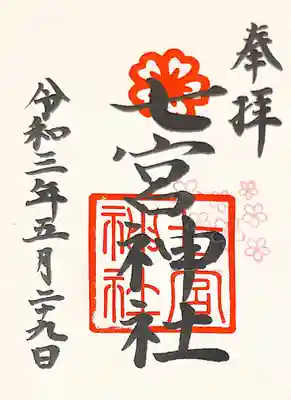 奉拝
七宮神社
七宮神社
令和三年五月二十九日